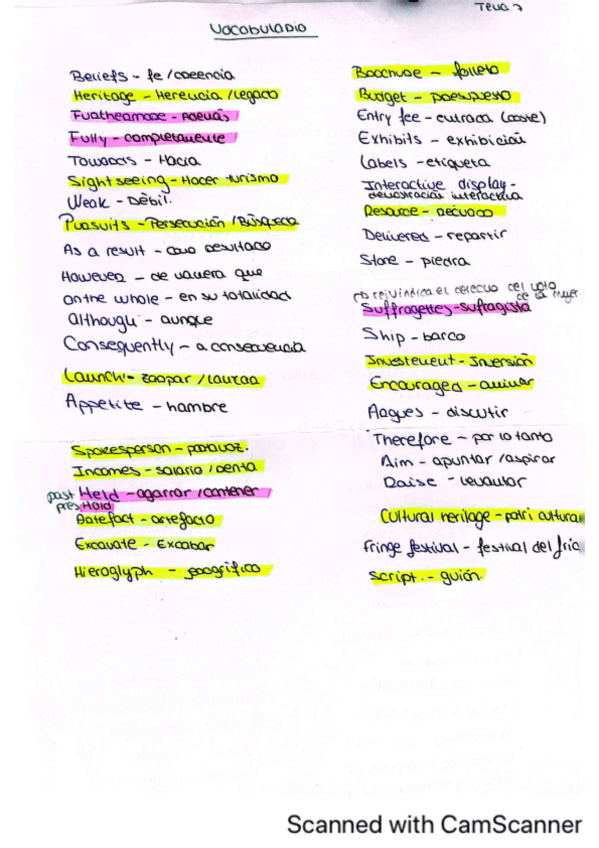 Tema 7
Vocabulario
Beliefs - fe / creencia
Heritage - Herencia / legado
Furthermore - Además
Fully - completamente
Towards - Hacia
Sightseeing - Hacer turismo
Weak - Débil.
Pursuits - Persecución / Búsqueda
As a result - como resultado
However - de manera que
On the whole - en su totalidad
Although - aunque
Consequently - a consecuencia
Launch - zarpar / lanzar
Appetite - hambre
Spokesperson - portavoz.
Incomes - salario / renta
past Held - agarrar / contener
pres Hold
Artefact - artefacto
Excavate - Excabar
Hieroglyph - geogrífico
Brochure - folleto
Budget - presupuesto
Entry fee - entrada (coste)
Exhibits - exhibición
Labels - etiqueta
Interactive display -
demostración interactiva
Resource - recurso
Delivered - repartir
Stone - piedra
reivindica el derecho del voto
de la mujer
Suffragettes - sufragista
Ship - barco
Investement - Inversión
Encouraged - animar
Argues - discutir
Therefore - por lo tanto
Aim - apuntar / aspirar
Raise - levantar
Cultural heritage - patri cultural
Fringe festival - festival del fric
Script. - guión.
Scanned with CamScanner